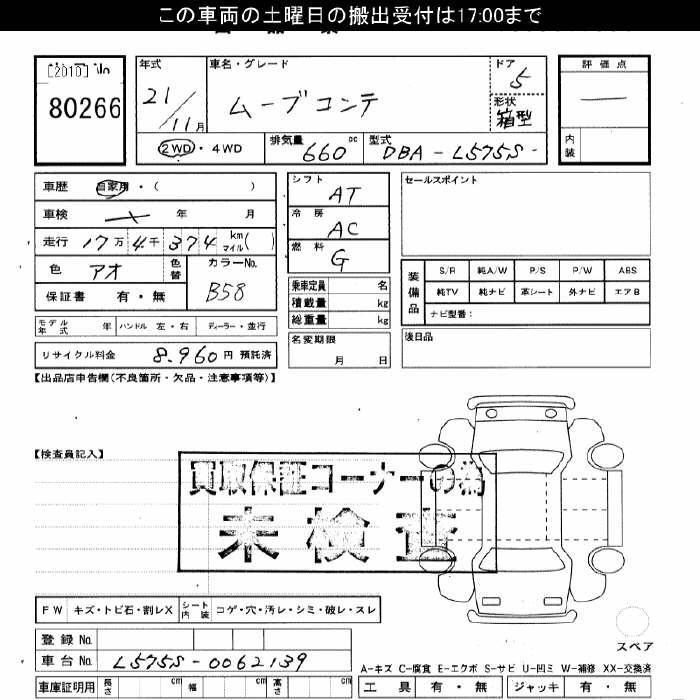 この車両の土曜日の搬出受付は17:00まで
[2010]
80266
年式
21/11月
車名・グレード
ムーブコンテ
ドア
5
形状
箱型
評価点
―
内装
2WD・4WD
排気量
660 cc
型式
DBA-L575S-
車歴 自家用・( )
車検 年 月
走行 17万4千374 km マイル( )
色 アオ 色替
カラーNo.
B58
保証書 有・無
モデル年式 年 ハンドル 左・右 ディーラー・並行
リサイクル料金 8,960円 預託済
シフト
AT
冷房
AC
燃料
G
乗車定員 名
積載量 kg
総重量 kg
名変期限
月 日
セールスポイント
装備品
S/R 純A/W P/S P/W ABS
純TV 純ナビ 革シート 外ナビ エアB
ナビ型番:
後日品
【出品店申告欄(不良箇所・欠品・注意事項等)】
【検査員記入】
買取保証コーナーの為
未検査
FW キズ・トビ石・割レX シート内装 コゲ・穴・汚レ・シミ・破レ・スレ
スペア
登録No.
車台No. L575S-0062139
A-キズ C-腐食 E-エクボ S-サビ U-凹ミ W-補修 XX-交換済
車庫証明用 長さ cm 幅 cm 高さ cm
工具 有・無 ジャッキ 有・無